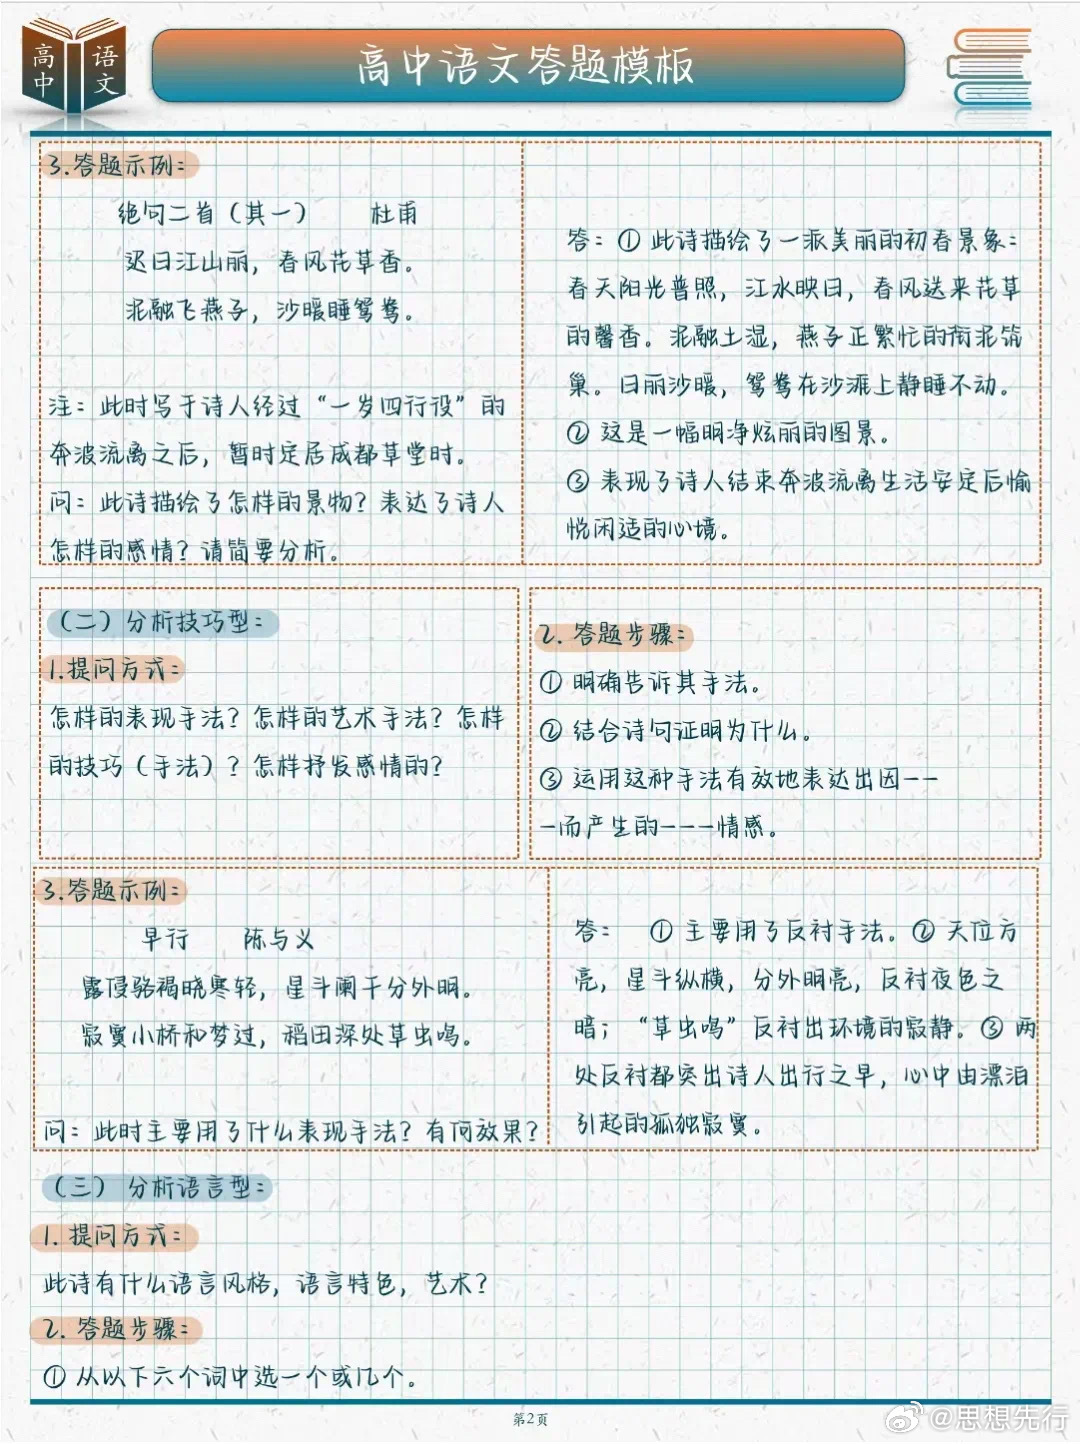 高中
语文
高中语文答题模板
3.答题示例:
绝句二首（其一） 杜甫
迟日江山丽，春风花草香。
泥融飞燕子，沙暖睡鸳鸯。
注：此时写于诗人经过“一岁四行役”的
奔波流离之后，暂时定居成都草堂时。
问：此诗描绘了怎样的景物？表达了诗人
怎样的感情？请简要分析。
答：① 此诗描绘了一派美丽的初春景象：
春天阳光普照，江水映日，春风送来花草
的馨香。泥融土湿，燕子正繁忙的衔泥筑
巢。日丽沙暖，鸳鸯在沙滩上静睡不动。
② 这是一幅明净炫丽的图景。
③ 表现了诗人结束奔波流离生活安定后愉
悦闲适的心境。
（二）分析技巧型：
1.提问方式：
怎样的表现手法？怎样的艺术手法？怎样
的技巧（手法）？怎样抒发感情的？
2. 答题步骤：
① 明确告诉其手法。
② 结合诗句证明为什么。
③ 运用这种手法有效地表达出因--
-而产生的---情感。
3.答题示例:
早行 陈与义
露侵骆褐晓寒轻，星斗阑干分外明。
寂寞小桥和梦过，稻田深处草虫鸣。
问：此时主要用了什么表现手法？有何效果？
答： ① 主要用了反衬手法。② 天位方
亮，星斗纵横，分外明亮，反衬夜色之
暗；“草虫鸣”反衬出环境的寂静。③ 两
处反衬都突出诗人出行之早，心中由漂泊
引起的孤独寂寞。
（三）分析语言型：
1. 提问方式：
此诗有什么语言风格，语言特色，艺术？
2. 答题步骤：
① 从以下六个词中选一个或几个。
第2页
@思想先行